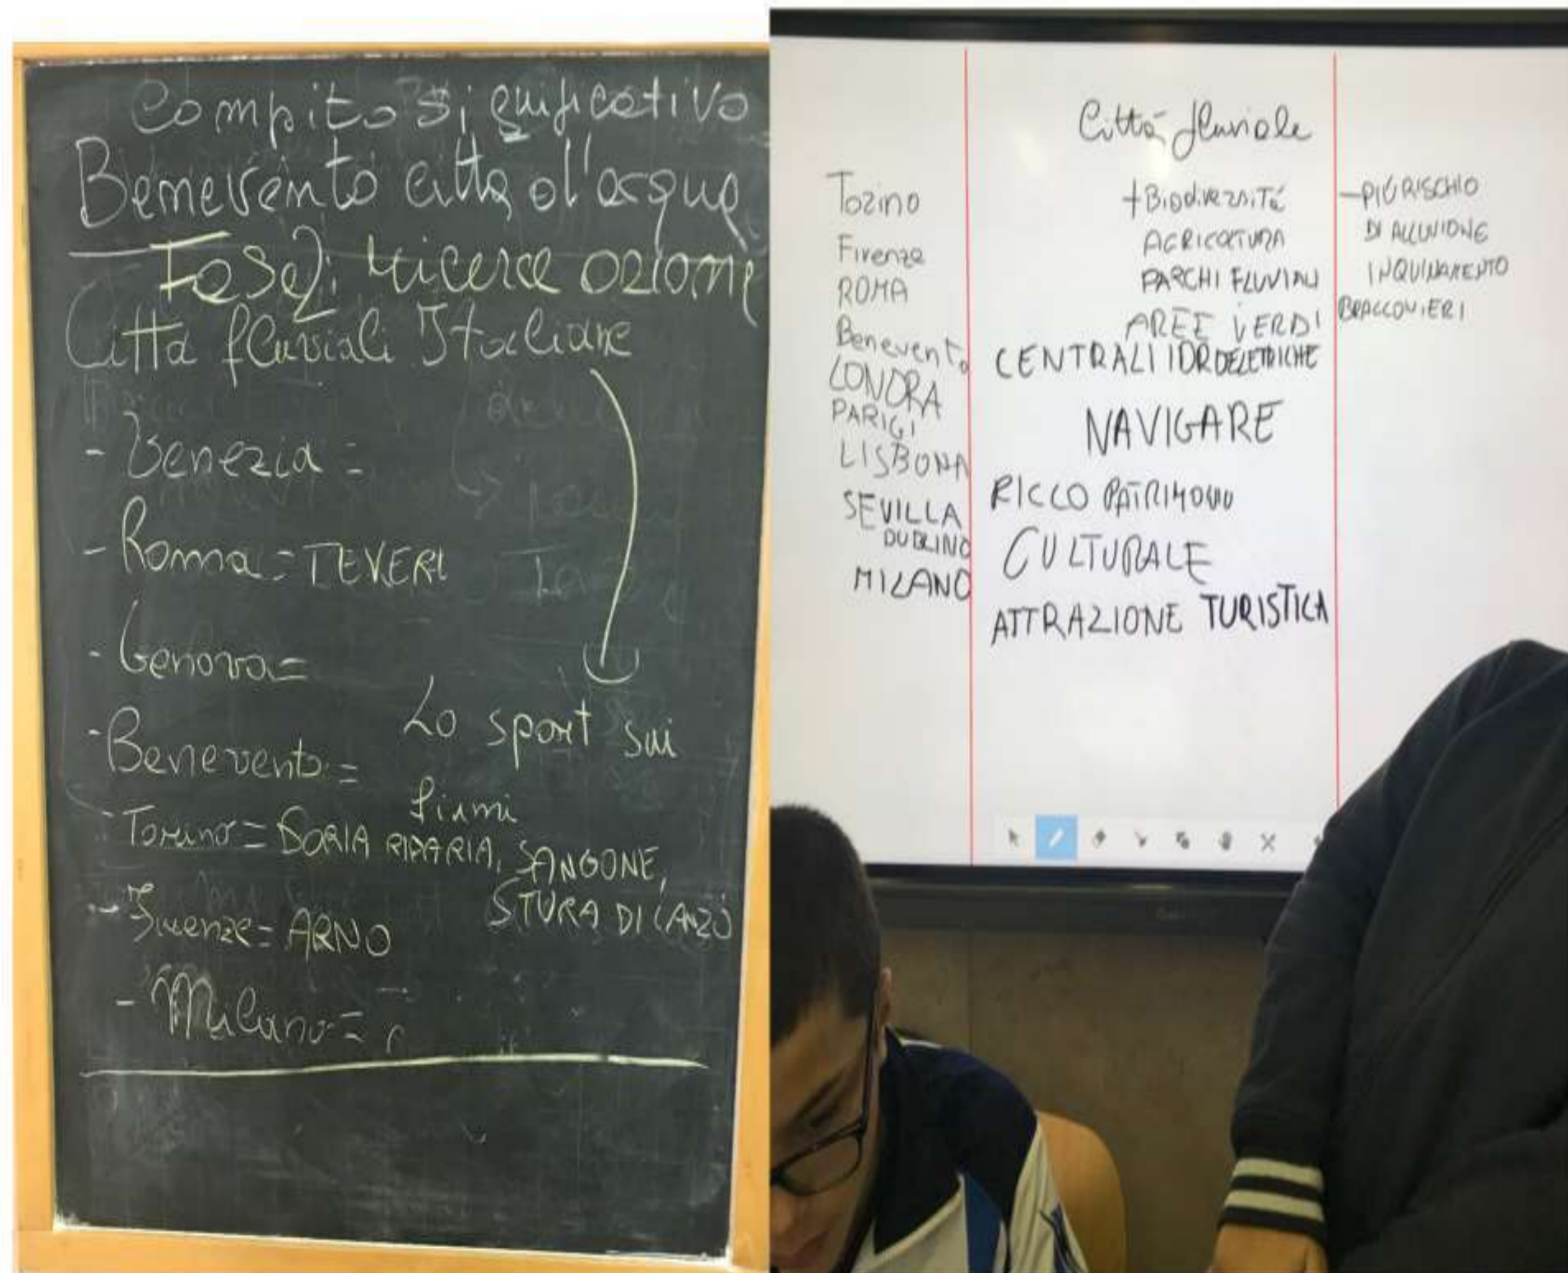 Compito significativo
Benevento città d'acqua
Fase 2: ricerca azione
Città fluviali Italiane
- Venezia =
- Roma = TEVERE
- Genova =
- Benevento =
Lo sport sui
fiumi
- Torino = DORIA RIPARIA, SANGONE,
STURA DI LANZO
- Firenze = ARNO
- Milano =
Città fluviale
Torino
Firenze
ROMA
Benevento
LONDRA
PARIGI
LISBONA
SEVILLA
DUBLINO
MILANO
+ BIODIVERSITÀ
AGRICOLTURA
PARCHI FLUVIALI
AREE VERDI
CENTRALI IDROELETRICHE
NAVIGARE
RICCO PATRIMONIO
CULTURALE
ATTRAZIONE TURISTICA
- PIÙ RISCHIO
DI ALLUVIONE
INQUINAMENTO
BRACCONIERI